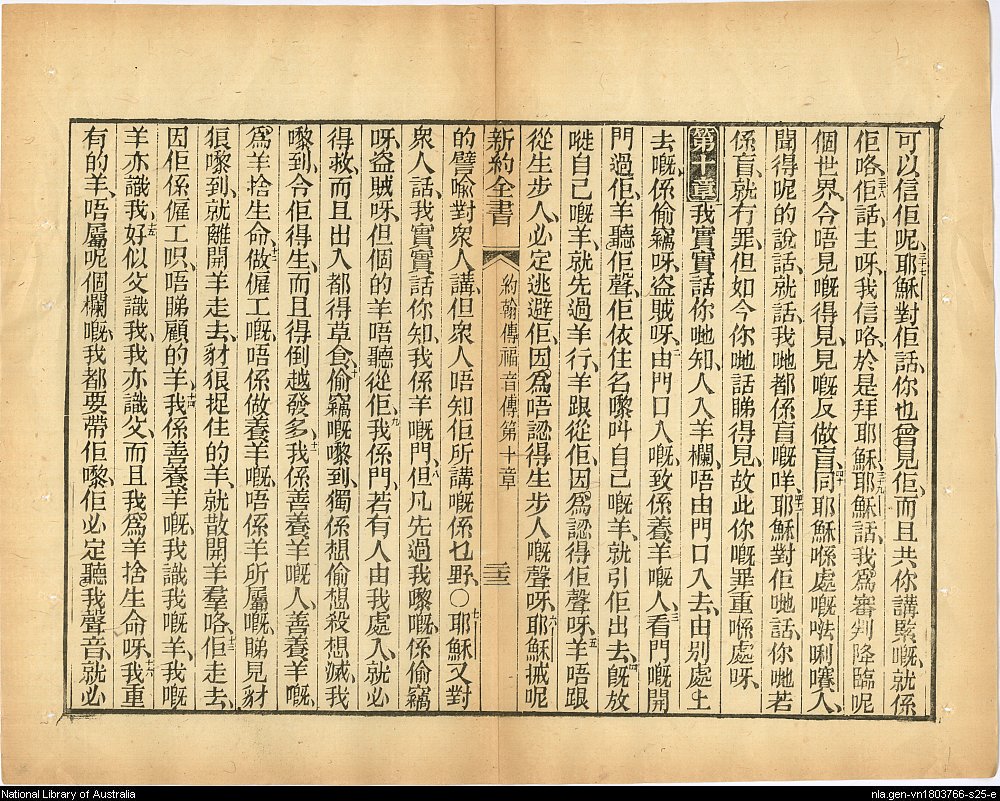 可以信佢呢、三十七耶穌對佢話、你也曾見佢、而且共你講緊嘅、就係
佢咯、三十八佢話、主呀、我信咯、於是拜耶穌、三十九耶穌話、我爲審判降臨呢
個世界、令唔見嘅得見、見嘅反做盲、四十同耶穌喺處嘅𠵽唎賽人、
聞得呢的說話、就話、我哋都係盲嘅咩、四十一耶穌對佢哋話、你哋若
係盲、就冇罪、但如今你哋話睇得見、故此你嘅罪重喺處呀、
第十章 我實實話你哋知、人入羊欄、唔由門口入去、由別處上
去嘅、係偷竊呀、盜賊呀、二由門口入嘅、致係養羊嘅人、三看門嘅開
門過佢、羊聽佢聲、佢依住名嚟呌自己嘅羊、就引佢出去、四旣放
嗮自己嘅羊、就先過羊行、羊跟從佢、因爲認得佢聲呀、五羊唔跟
從生步人、必定逃避佢、因爲唔認得生步人嘅聲呀、六耶穌搣呢
新約全書 約翰傳福音傳第十章 二十三
的譬喻對衆人講、但衆人唔知佢所講嘅係乜野、〇七耶穌又對
衆人話、我實實話你知、我係羊嘅門、八但凡先過我嚟嘅、係偷竊
呀、盜賊呀、但個的羊唔聽從佢、九我係門、若有人由我處入、就必
得救、而且出入都得草食、十偷竊嘅嚟到、獨係想偷想殺想滅、我
嚟到、令佢得生、而且得倒越發多、十一我係善養羊嘅人、善養羊嘅、
爲羊捨生命、十二做僱工嘅、唔係做養羊嘅、唔係羊所屬嘅、睇見豺
狼嚟到、就離開羊走去、豺狼捉住的羊、就散開羊羣咯、十三佢走去、
因佢係僱工呮、唔睇顧的羊、十四我係善養羊嘅、我識我嘅羊、我嘅
羊亦識我、十五好似父識我、我亦識父、而且我爲羊捨生命呀、十六我重
有的羊、唔屬呢個欄嘅、我都要帶佢嚟、佢必定聽我聲音、就必
National Library of Australia
nla.gen-vn1803766-s25-e